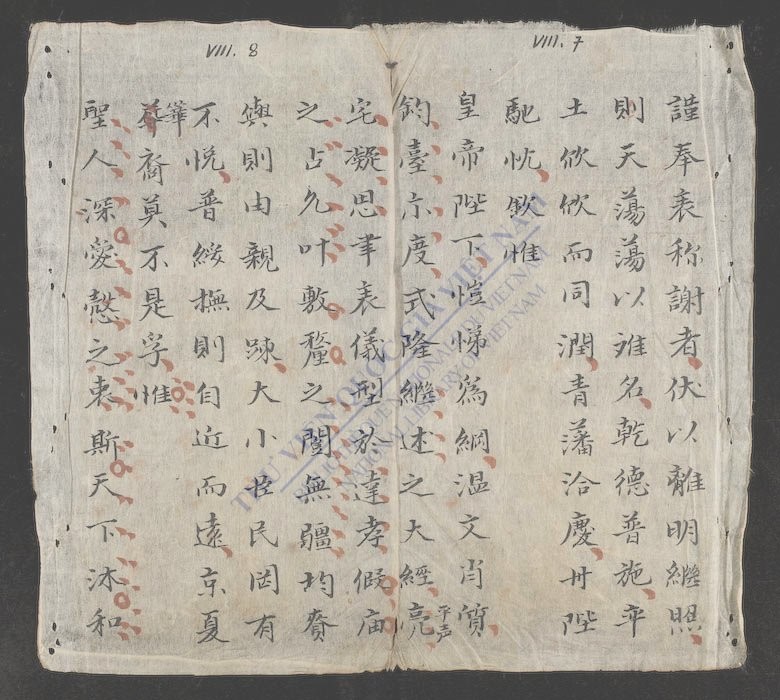 VIII. 7
謹奉表称謝者伏以離明繼照
則天蕩蕩以难名乾德普施率
土欣欣而同潤青藩洽慶丹陛
馳忱欽惟
皇帝陛下愷悌爲綱溫文肖質
鈞臺示度式隆繼述之大經亮
平声
VIII. 8
宅凝思聿表儀型於達孝假庙
之占允叶敷釐之闓無疆均賚
與則由親及踈大小臣民罔有
不悦普綏撫則自近而遠京夏
華
裔莫不是孚惟
聖人深愛慤之衷斯天下沐和
THƯ VIỆN QUỐC GIA VIỆT NAM
BIBLIOTHEQUE NATIONALE DU VIETNAM
NATIONAL LIBRARY OF VIETNAM